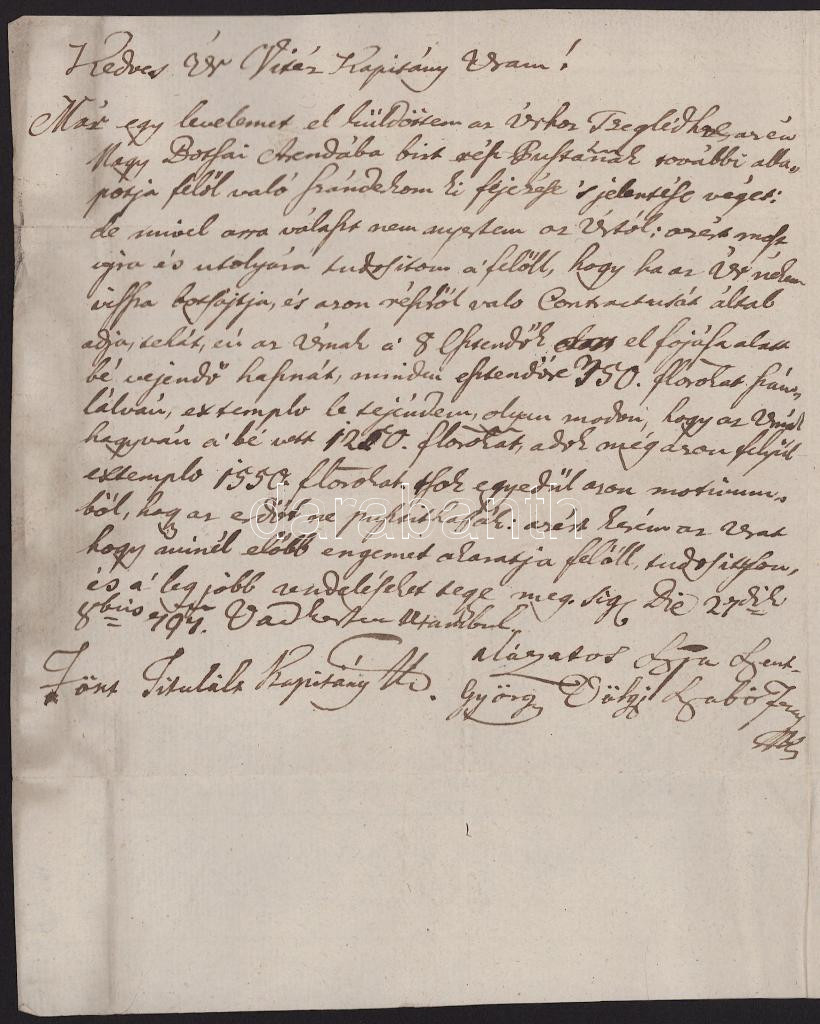 Kedves Úr Vitéz Kapitány Uram!
Már egy levelemet el küldöttem az Úrhoz Tzeglédhre, az én
Nagy Botsai Arendába birt rész Pusztának további álla-
potja felől való szándékom ki fejezése 's jelentése végett:
de mivel arra választ nem nyertem az Úrtól: azért most
ujra és utolyára tudositom a' felöll, hogy ha az Úr nékem
viszsza botsájtja, és azon részről való Contractusát által
adja, tehát, én az Úrnak a' 8 Esztendők el fojása alatt
bé vejendő hasznát, minden esztendőre 350. florokat szám-
lálván, extemplo le tejéndem, olyan modon, hogy az Urnál
hagyván a' bé vett 1250. florokat, adok még azon felyül
extemplo 1550. florokat tsak egyedül azon motivum-
ból, hogy az erdőt ne pusztithassák: azért kérem az Urat
hogy minél előbb engemet akaratja felöll, tudosittson,
és a' leg jobb rendeléseket tege meg. Sig. Die 27dik
8bris 797. Vadkerten
alázatos Szent-
Fönt Titulált Kapitány
György Szabó
darabanth